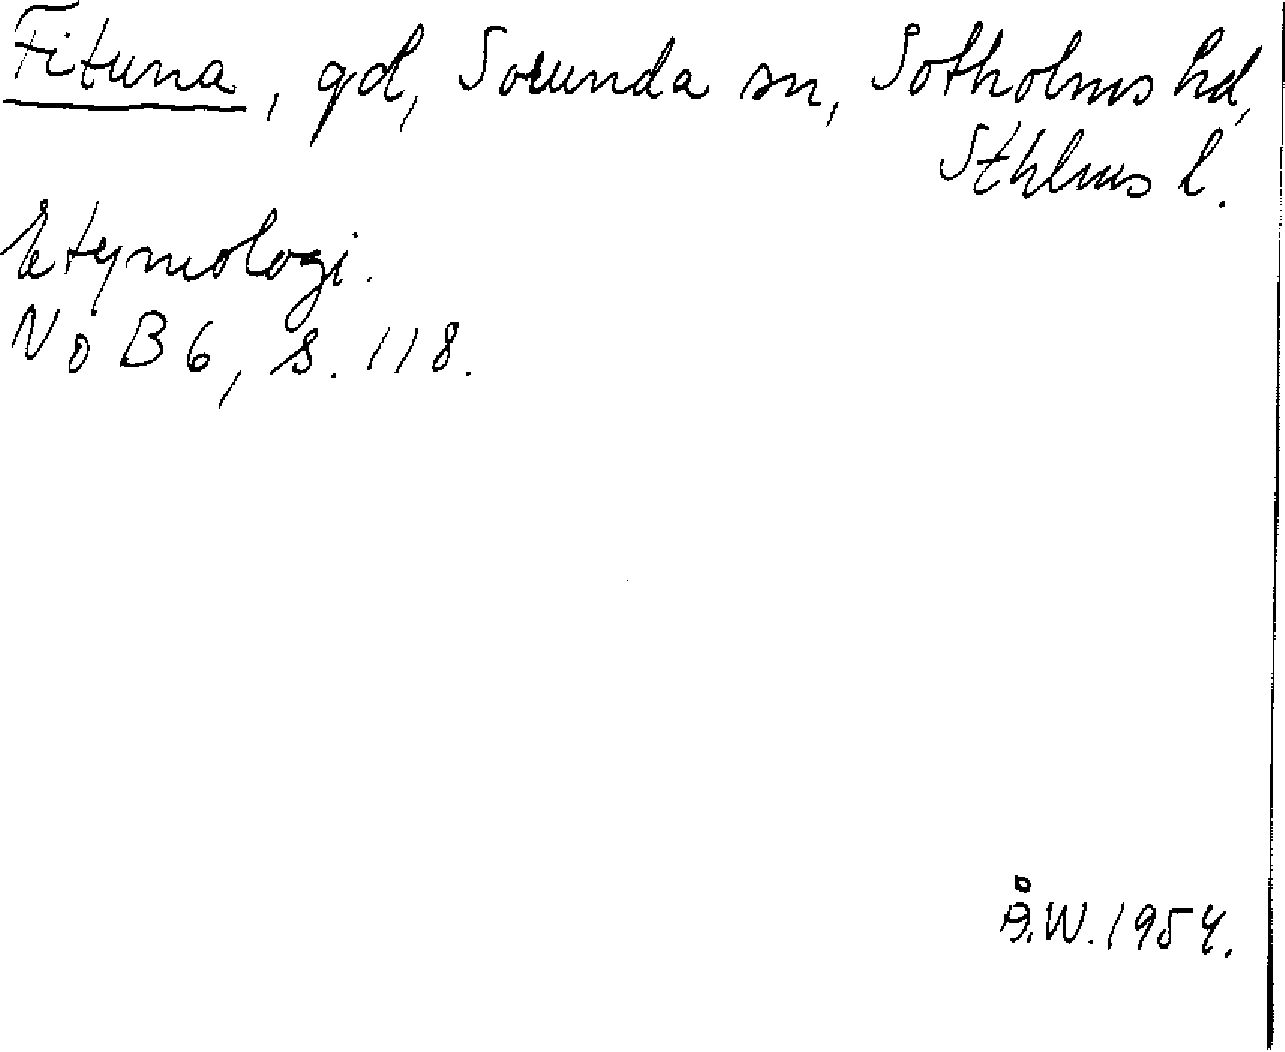 Fituna, gd, Sorunda sn, Sotholms hd,
Sthlms l.
Etymologi.
NoB 6, s. 118.
Å.W. 1954.